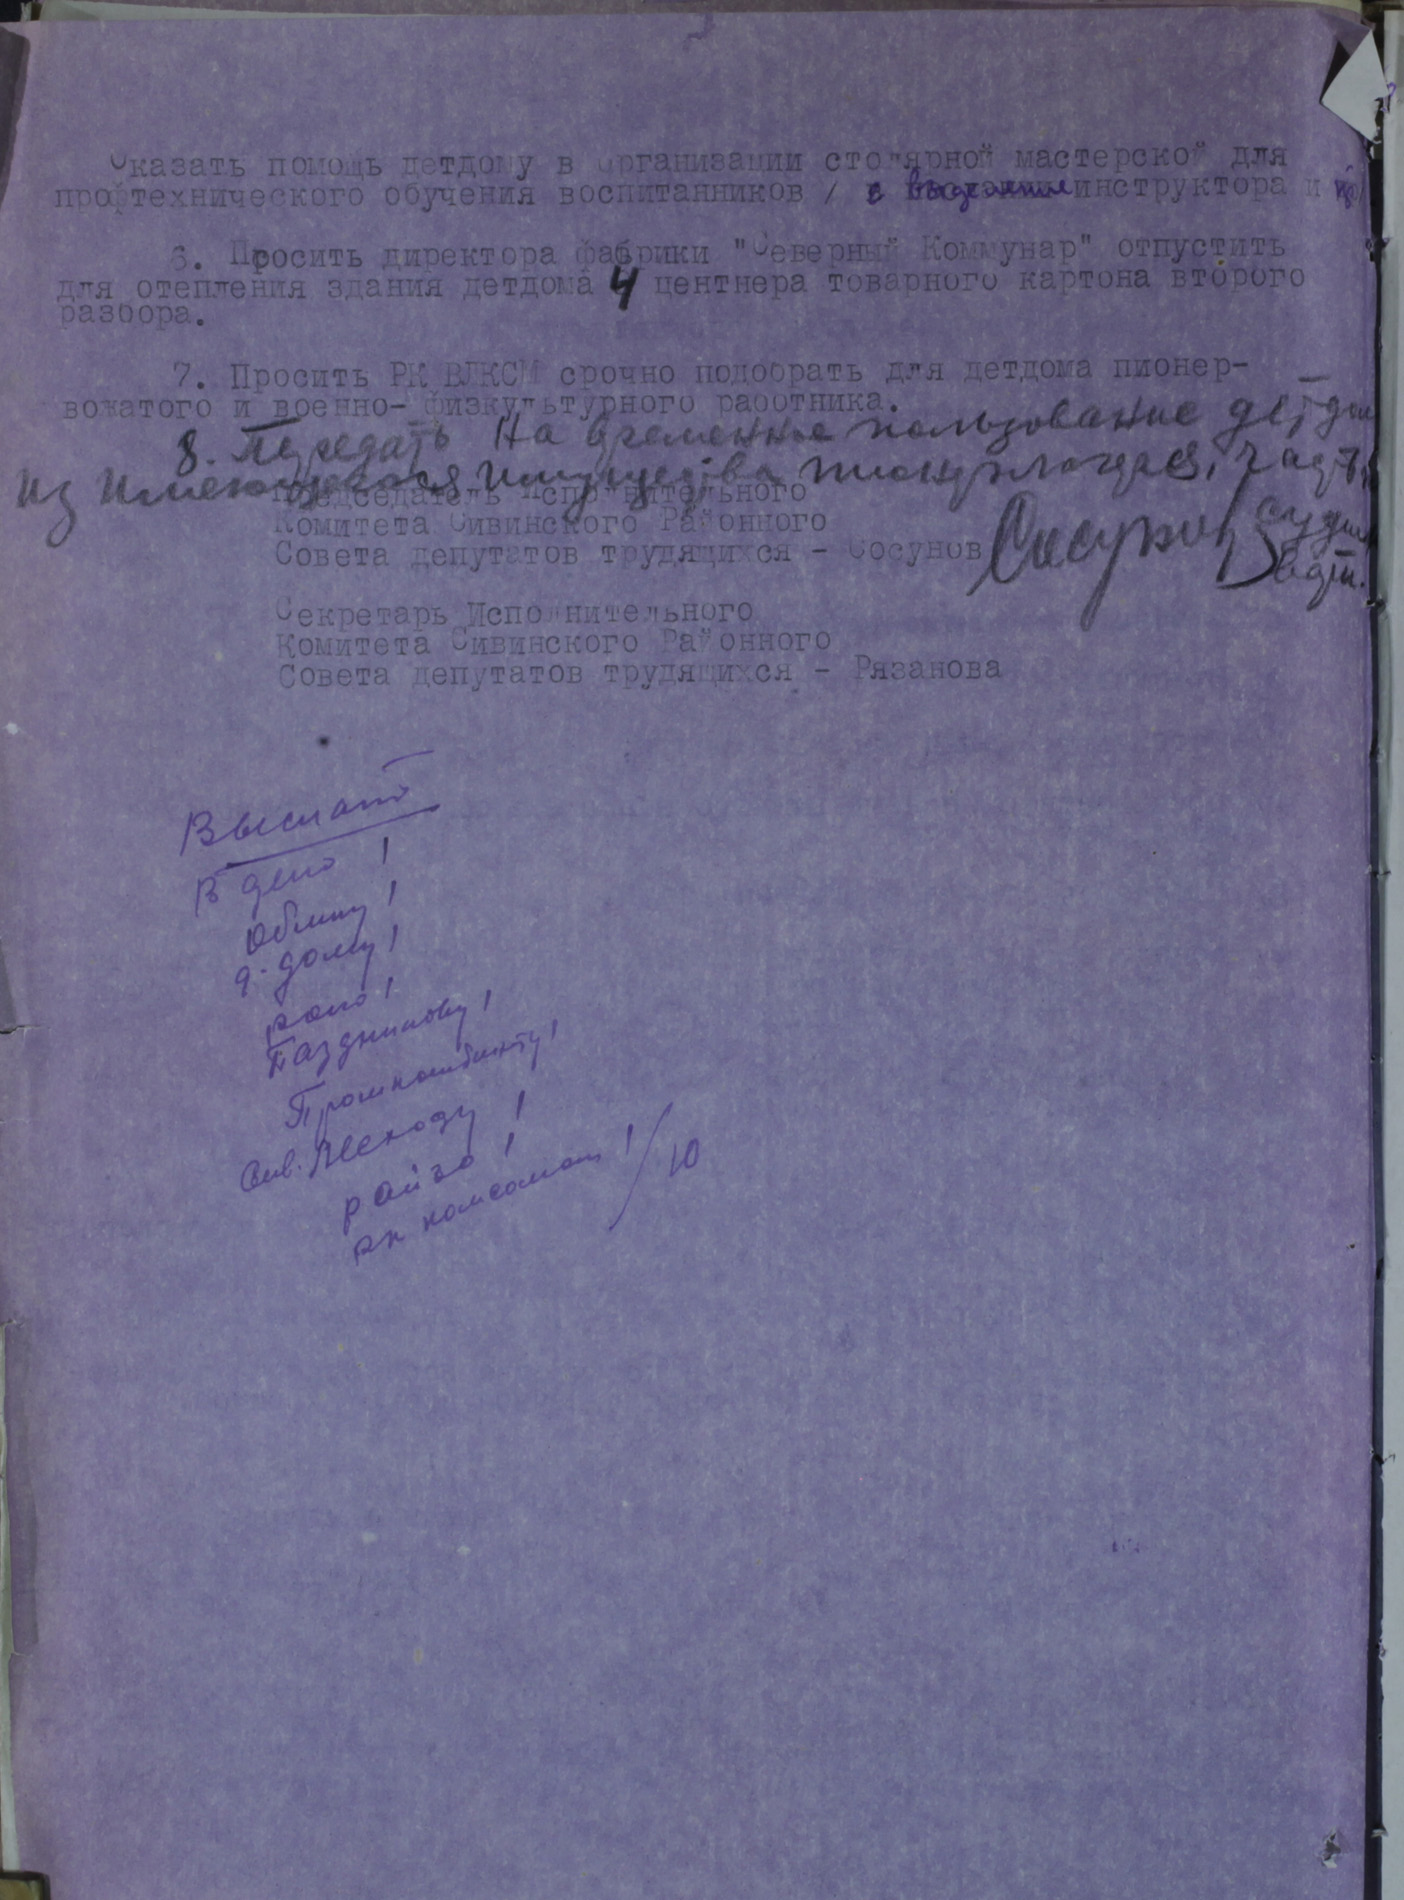 Оказать помощь детдому в организации столярной мастерской для
профтехнического обучения воспитанников / с выделением инструктора и
6. Просить директора фабрики "Северный Коммунар" отпустить
для отепления здания детдома 4 центнера товарного картона второго
разбора.
7. Просить РК ВЛКСМ срочно подобрать для детдома пионер-
вожатого и военно- физкультурного работника.
8. Передать на временное пользование детдому
из имеющегося имущества пионерлагеря,
Председатель Исполнительного
Комитета Сивинского Районного
Совета депутатов трудящихся - Сосунов Сосунов
Секретарь Исполнительного
Комитета Сивинского Районного
Совета депутатов трудящихся - Рязанова
Выслать
В дело 1
1
д. дому 1
роно 1
Паздникову 1
Промкомбинату 1
Сив. 1
райзо 1
рк комсомол 1/10